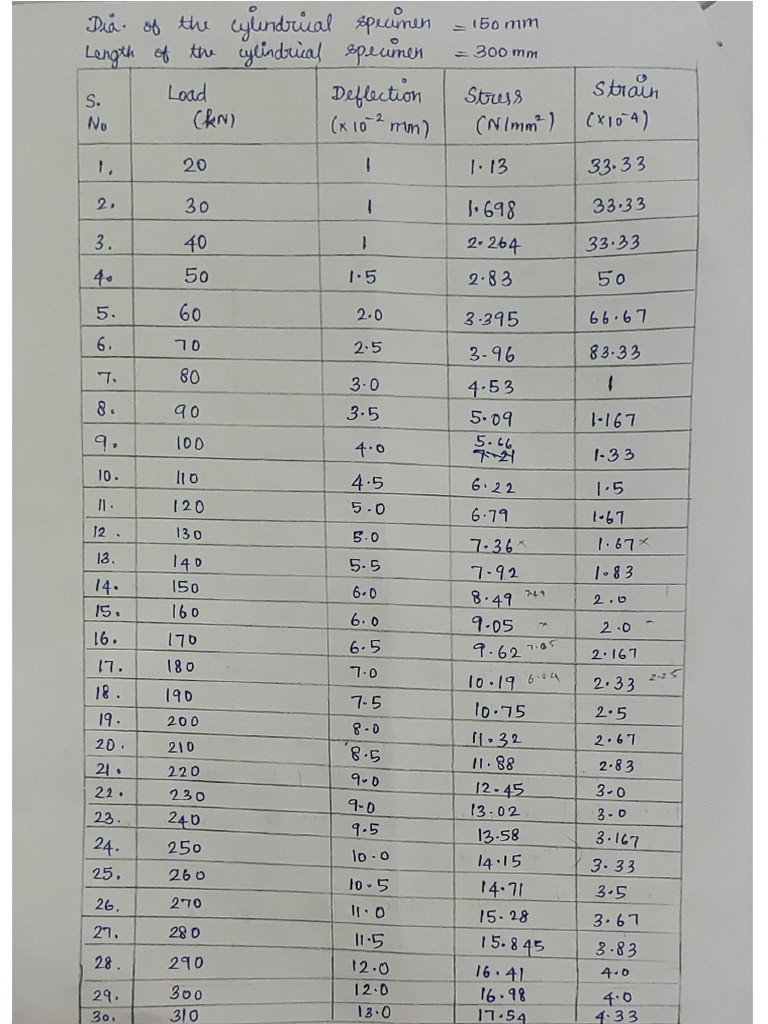 Dia. of the cylindrical specimen = 150 mm
Length of the cylindrical specimen = 300 mm
S. No Load (kN) Deflection (x 10-2 mm) Stress (N/mm2) Strain (x10-4)
1. 20 1 1.13 33.33
2. 30 1 1.698 33.33
3. 40 1 2.264 33.33
4. 50 1.5 2.83 50
5. 60 2.0 3.395 66.67
6. 70 2.5 3.96 83.33
7. 80 3.0 4.53 1
8. 90 3.5 5.09 1.167
9. 100 4.0 5.66 7.21 1.33
10. 110 4.5 6.22 1.5
11. 120 5.0 6.79 1.67
12. 130 5.0 7.36 x 1.67 x
13. 140 5.5 7.92 1.83
14. 150 6.0 8.49 2.0
15. 160 6.0 9.05 2.0
16. 170 6.5 9.62 7.05 2.167
17. 180 7.0 10.19 2.33 2.25
18. 190 7.5 10.75 2.5
19. 200 8.0 11.32 2.67
20. 210 8.5 11.88 2.83
21. 220 9.0 12.45 3.0
22. 230 9.0 13.02 3.0
23. 240 9.5 13.58 3.167
24. 250 10.0 14.15 3.33
25. 260 10.5 14.71 3.5
26. 270 11.0 15.28 3.67
27. 280 11.5 15.845 3.83
28. 290 12.0 16.41 4.0
29. 300 12.0 16.98 4.0
30. 310 13.0 17.54 4.33